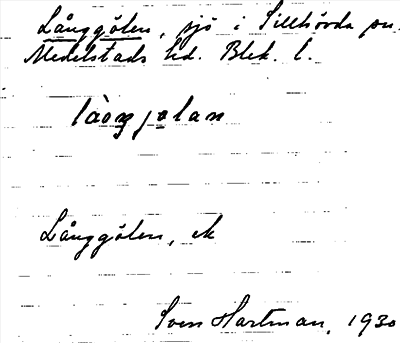 Långgölen, sjö i Sillhövda sn.
Medelstads hd. Blek. l.
Långgölen, ek
Sven Hartman, 1930